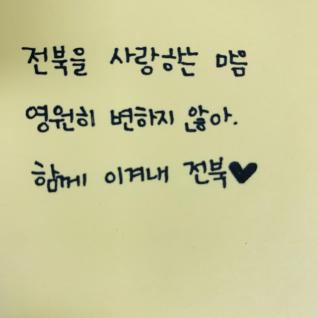 전북을 사랑하는 마음
영원히 변하지 않아.
함께 이겨내 전북♥